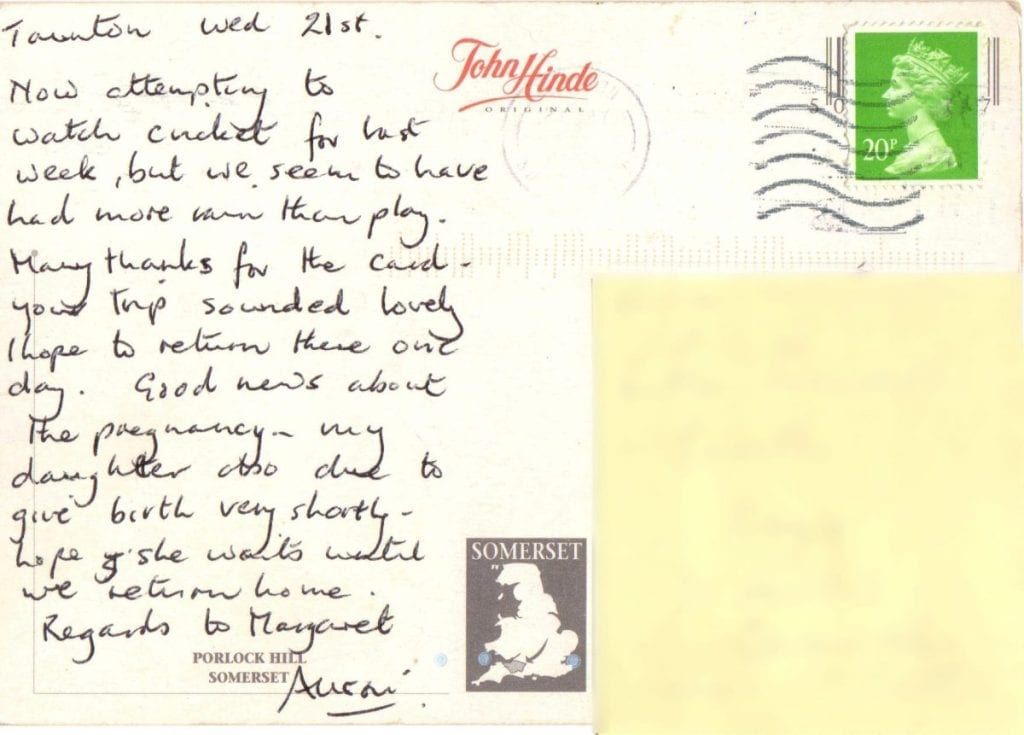 Taunton Wed 21st.
Now attempting to
watch cricket for last
week, but we seem to have
had more rain than play.
Many thanks for the card -
your trip sounded lovely
I hope to return there one
day. Good news about
the pregnancy - my
daughter also due to
give birth very shortly -
hope she waits until
we return home.
Regards to Margaret
John Hinde
ORIGINAL
20P
SOMERSET
PORLOCK HILL
SOMERSET